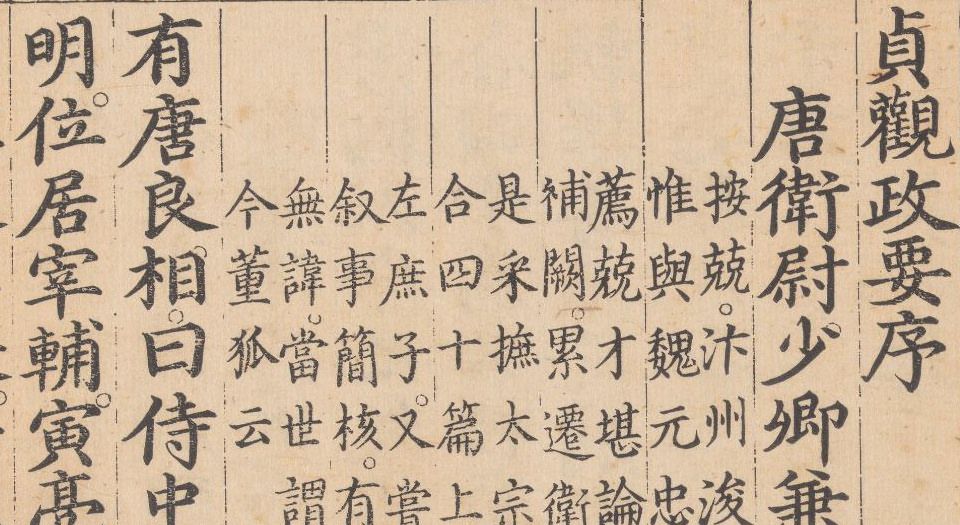 貞觀政要序
唐衛尉少卿兼
按兢。汴州浚
惟與魏元忠
薦兢才堪論
補闕。累遷衛
是采摭太宗
合四十篇上
左庶子。又嘗
叙事簡核。有
無諱。當世謂
今董狐云
有唐良相。曰侍中
明。位居宰輔。寅亮